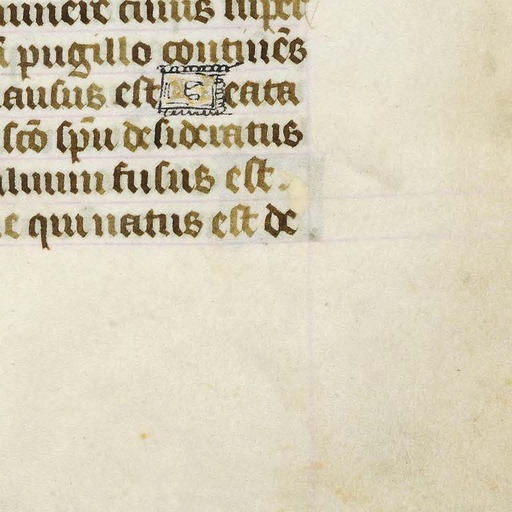 munere cuius super
pugillo continēs
lausus est Beata
scō spū desideratus
aluum fusus est.
e qui natus est de